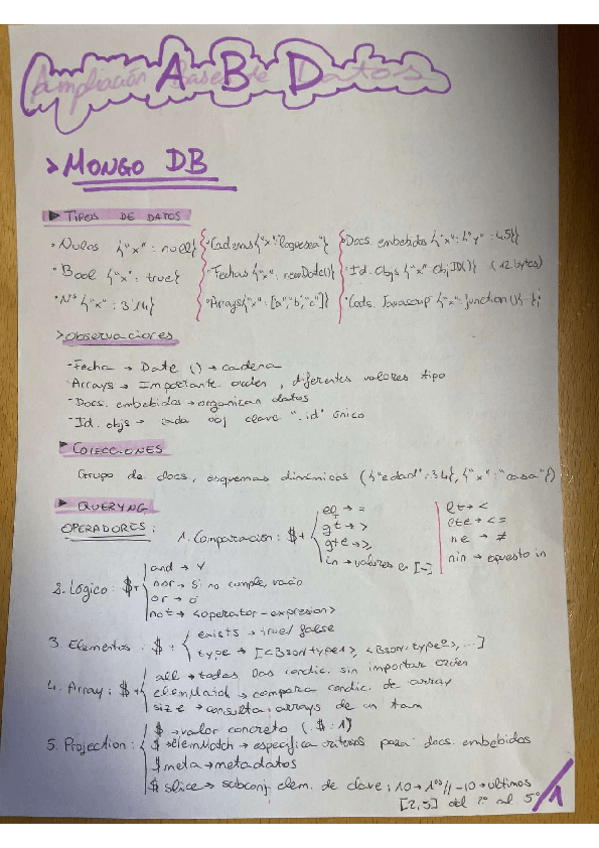 Ampliación Bases de Datos
A B D
> MONGO DB
▶ TIPOS DE DATOS
· Nulos {"x" : null}
· Bool {"x" : true}
· Nº {"x" : 3'14}
· Cadens {"x":"loquesea"}
· Fechas {"x" : newDate()}
· Arrays {"x" : ["a","b","c"]}
· Docs. embebidos {"x" : {"y" : 45}}
· Id. Objs {"x" ObjID()} (12 bytes)
· Cods. Javascrip {"x": function() {}
> Observaciones
- Fecha → Date () → cadena
- Arrays → Importante orden, diferentes valores tipo
- Docs. embebidos → organizan datos
- Id. objs → cada obj clave "_id" único
▶ COLECCIONES
Grupo de docs, esquemas dinámicos ({"edad":34},{"x":"casa"})
▶ QUERYNG
OPERADORES:
1. Comparación: $+
eq → =
gt → >
gte → ≥
in → valores en [~]
lt → <
lte → <=
ne → ≠
nin → opuesto in
2. Lógico: $+
and → Y
nor → Si no cumple, vacío
or → ó
not → <operator-expresion>
3. Elementos: $ +
exists → true/false
type → [<BsonType1>, <BsonType2>, ...]
4. Array: $+
all → todas las condic. sin importar orden
elemMatch → compara condic. de array
size → consulta arrays de un tam
5. Projection:
$ → valor concreto (.$:1)
$ elemMatch → especifica criterios para docs. embebidos
$ meta → metadatos
$ slice → subconj. elem. de clave; 10 → 1ºs // -10 → ultimos
[2,5] del 2º al 5º
1